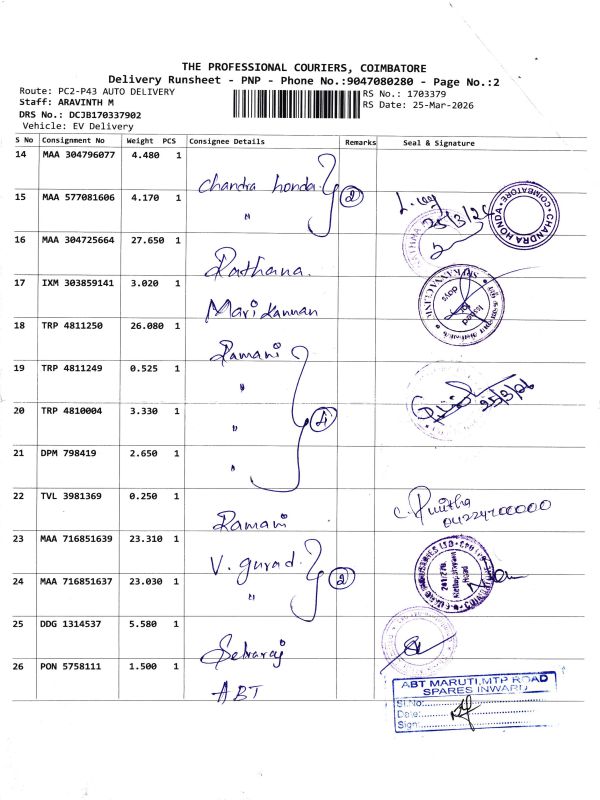 THE PROFESSIONAL COURIERS, COIMBATORE
Delivery Runsheet - PNP - Phone No.:9047080280 - Page No.:2
Route: PC2-P43 AUTO DELIVERY
RS No.: 1703379
Staff: ARAVINTH M
RS Date: 25-Mar-2026
DRS No.: DCJB170337902
Vehicle: EV Delivery
S No Consignment No Weight PCS Consignee Details Remarks Seal & Signature
14 MAA 304796077 4.480 1 Chandra honda
15 MAA 577081606 4.170 1 " 2 25/3/26
CHANDRA HONDA COIMBATORE
16 MAA 304725664 27.650 1 Rathana.
17 IXM 303859141 3.020 1 Mari Kannan
18 TRP 4811250 26.080 1 Ramani
19 TRP 4811249 0.525 1 " 25/3/26
20 TRP 4810004 3.330 1 " 4
21 DPM 798419 2.650 1 "
22 TVL 3981369 0.250 1 Ramani
23 MAA 716851639 23.310 1
24 MAA 716851637 23.030 1 " 2
Road
25 DDG 1314537 5.580 1 Selvaraj
26 PON 5758111 1.500 1 ABT
ABT MARUTI,MTP ROAD
SPARES INWARD
Sl.No:
Date:
Sign: